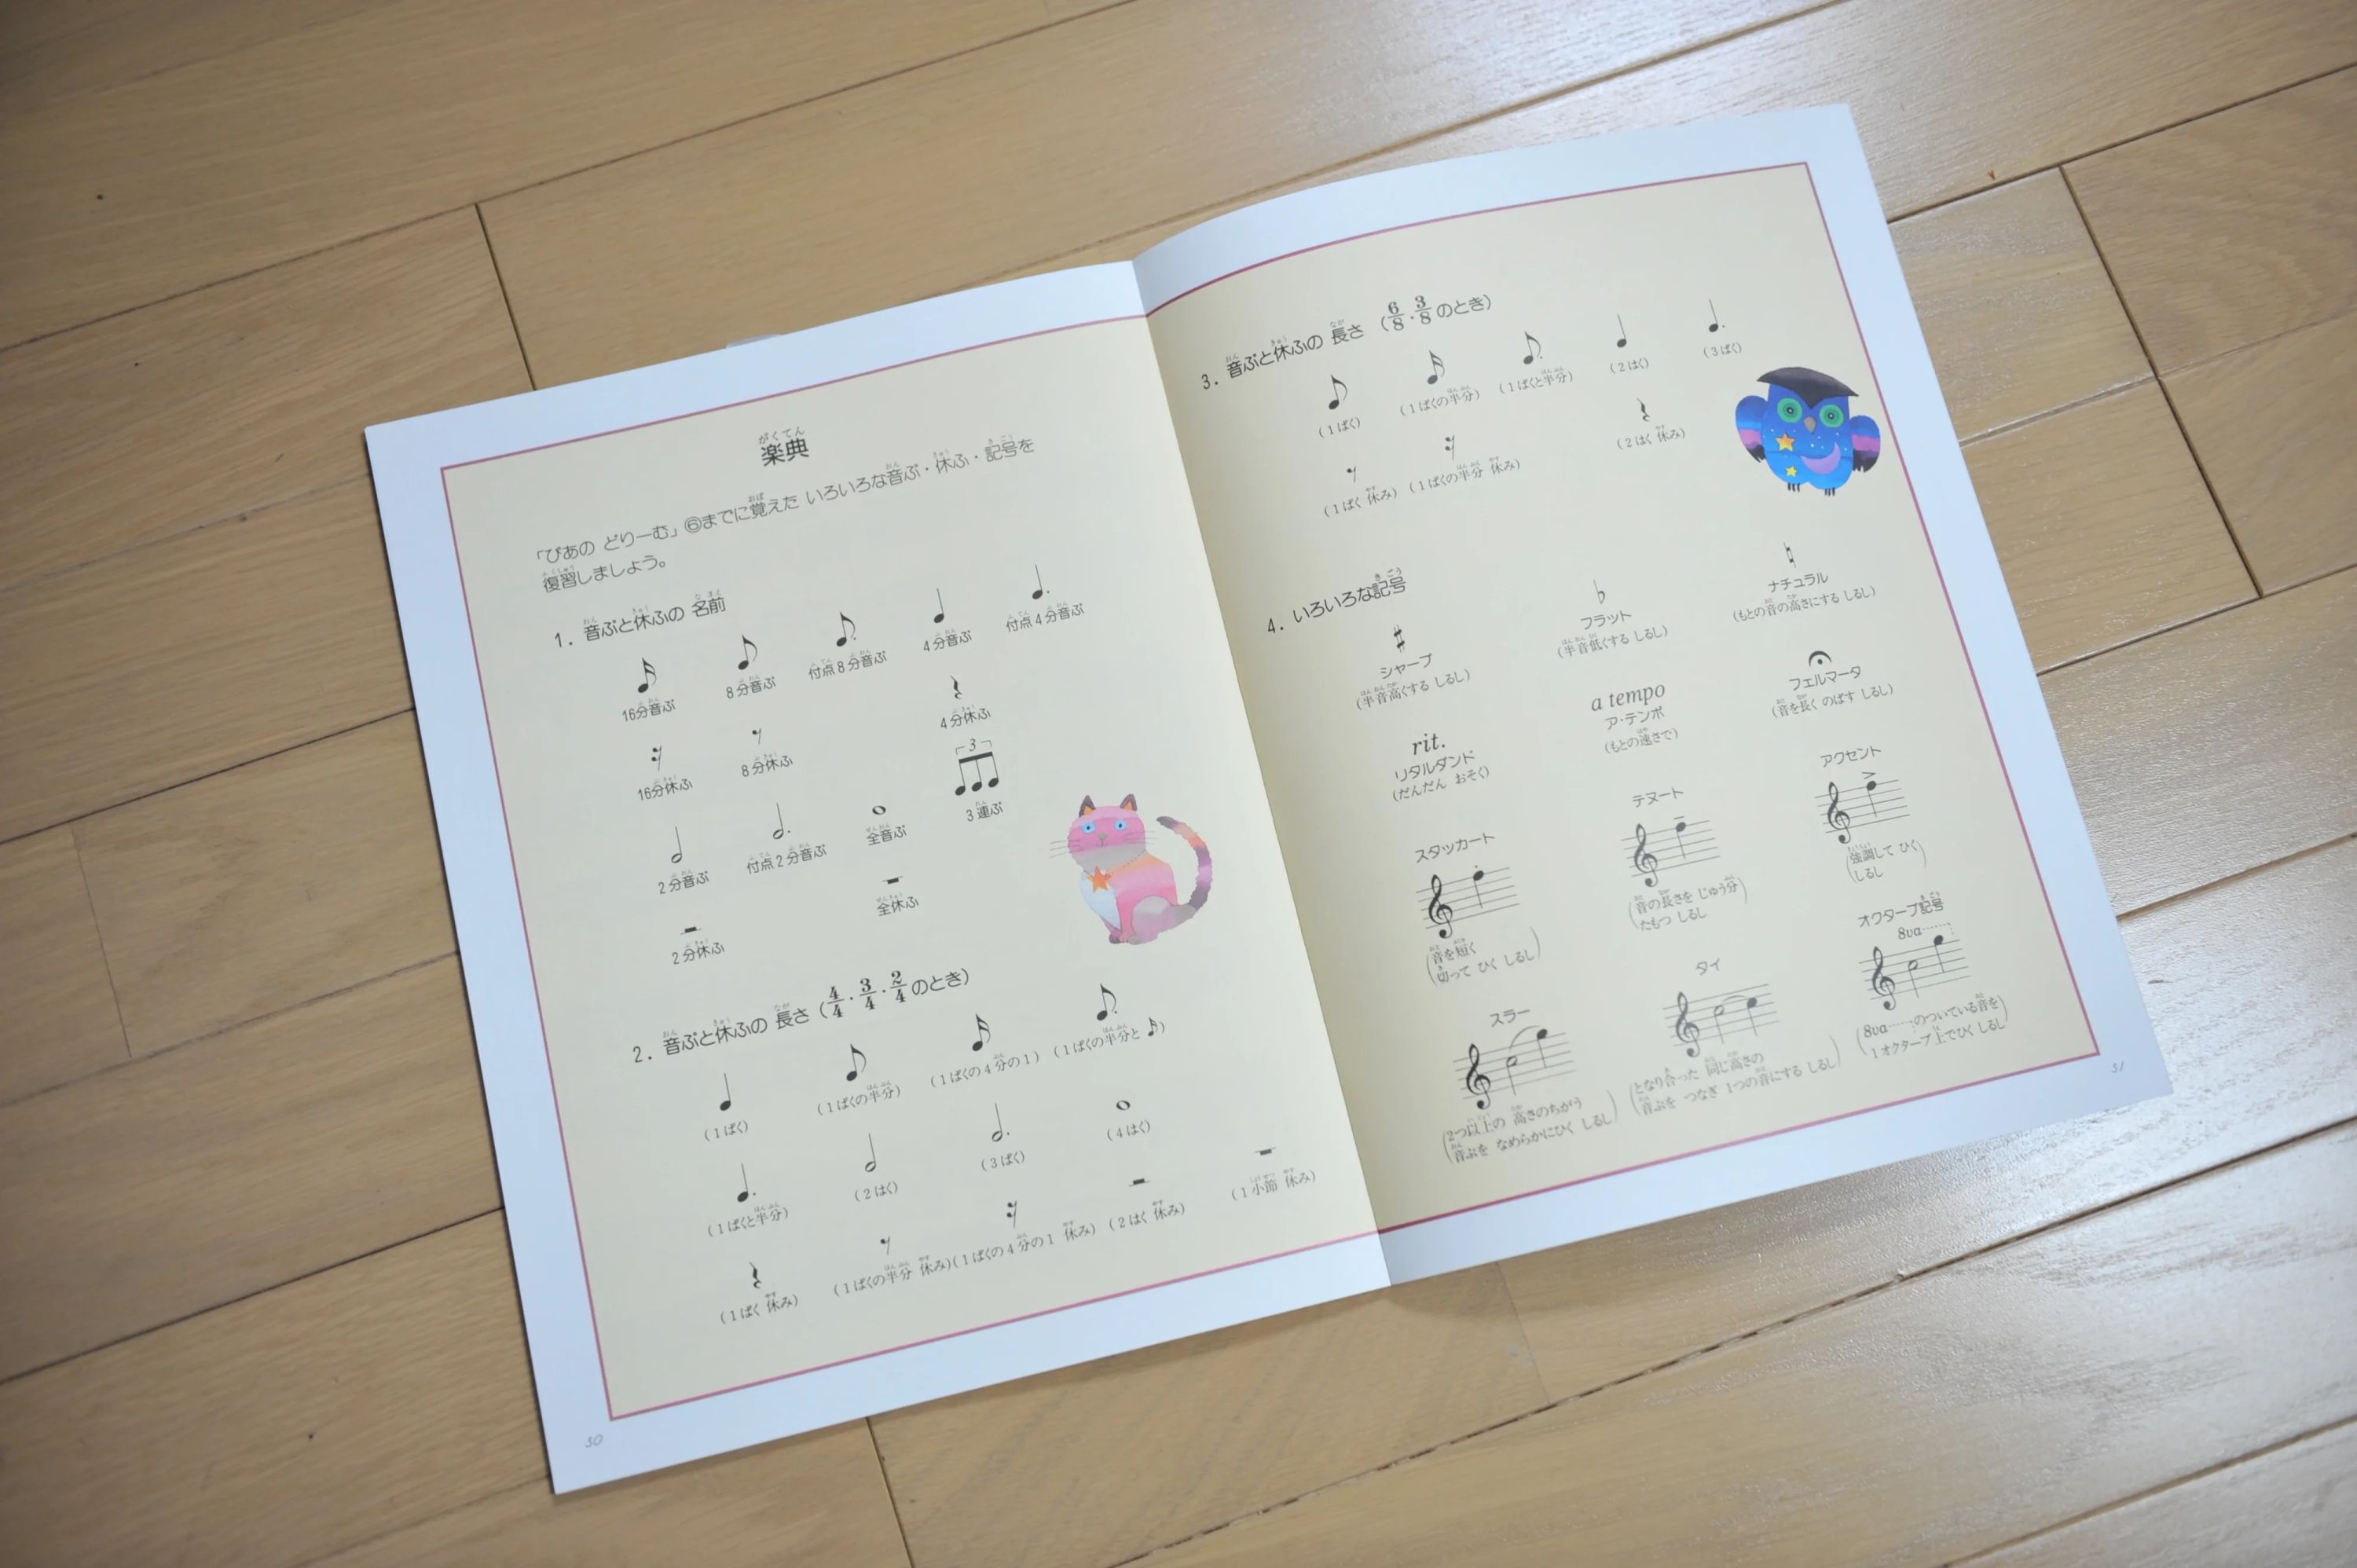 楽典
「ぴあの どりーむ」⑥までに覚えた いろいろな音ぷ・休ふ・記号を
復習しましょう。
1. 音ぷと休ふの 名前
16分音ぷ 8分音ぷ 付点8分音ぷ 4分音ぷ 付点4分音ぷ
16分休ふ 8分休ふ 4分休ふ
3
2分音ぷ 付点2分音ぷ 全音ぷ 3連ぷ
2分休ふ 全休ふ
2. 音ぷと休ふの 長さ (4/4・3/4・2/4のとき)
(1ぱく) (1ぱくの半分) (1ぱくの4分の1) (1ぱくの半分と )
(1ぱくと半分) (2はく) (3ぱく) (4はく)
(1ぱく 休み) (1ぱくの半分 休み) (1ぱくの4分の1 休み) (2はく 休み) (1小節 休み)
50
3. 音ぷと休ふの 長さ (6/8・3/8のとき)
(1ぱく) (1ぱくの半分) (1ぱくと半分) (2はく) (3ぱく)
(1ぱく 休み) (1ぱくの半分 休み) (2はく 休み)
4. いろいろな記号
シャープ フラット ナチュラル
(半音高くする しるし) (半音低くする しるし) (もとの音の高さにする しるし)
rit. a tempo
リタルダンド ア・テンポ フェルマータ
(だんだん おそく) (もとの速さで) (音を長く のばす しるし)
スタッカート テヌート アクセント
(音を短く
切って ひく しるし)
(音の長さを じゅう分
たもつ しるし)
(強調して ひく
しるし)
スラー タイ オクターブ記号
8va
(2つ以上の 高さのちがう
音ぷを なめらかにひく しるし)
(となり合った 同じ高さの
音ぷを つなぎ 1つの音にする しるし)
(8va……のついている音を
1オクターブ上でひく しるし)
51